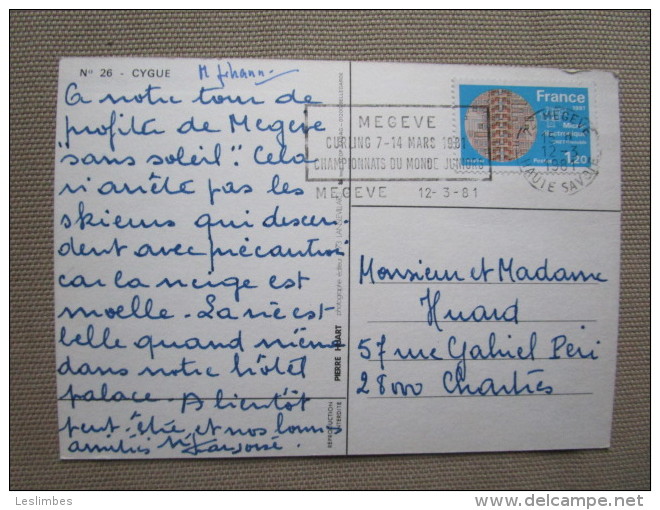 N° 26 - CYGUE
A notre tour de
profiter de Megève
"sans soleil". Cela
n'arrête pas les
skieurs qui descen-
dent avec précaution
car la neige est
moelle. La vie est
belle quand même
dans notre hôtel
palace. A bientôt
peut-être et nos bonnes
amitiés
PIERRE
photographe
REPRODUCTION
INTERDITE
MEGEVE
CURLING 7-14 MARS 1981
CHAMPIONNATS DU MONDE JUNIORS
MEGEVE 12-3-81
France
1981
1,20
MEGEVE
12-3
1981
HAUTE SAVOIE
Monsieur et Madame
Huard
57 rue Gabriel Péri
28000 Chartres
Leslimbes
delcampe.net